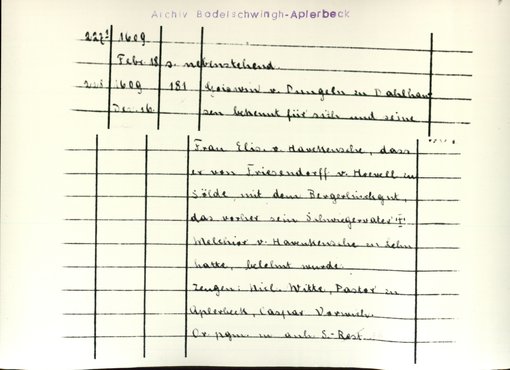 Archiv Bodelschwingh-Aplerbeck
227² 1609
Febr. 18 s. nebenstehend.
1609 181 Goiswin v. Dungeln zu Dahlhau
Dez. 16. sen bekennt für sich und seine
Frau Elis. v. Havekensche, dass
er von Friesendorff v. Hoevell zu
Sölde mit dem Bergerhischgut,
das vorher sein Schwiegervater †
Melchior v. Havekensche zu Lehn
hatte, belehnt wurde.
Zeugen: Mich. Witte, Pastor zu
Aplerbeck, Caspar Vorwerk.
Or. pgm. m. anh. S.-Rest.